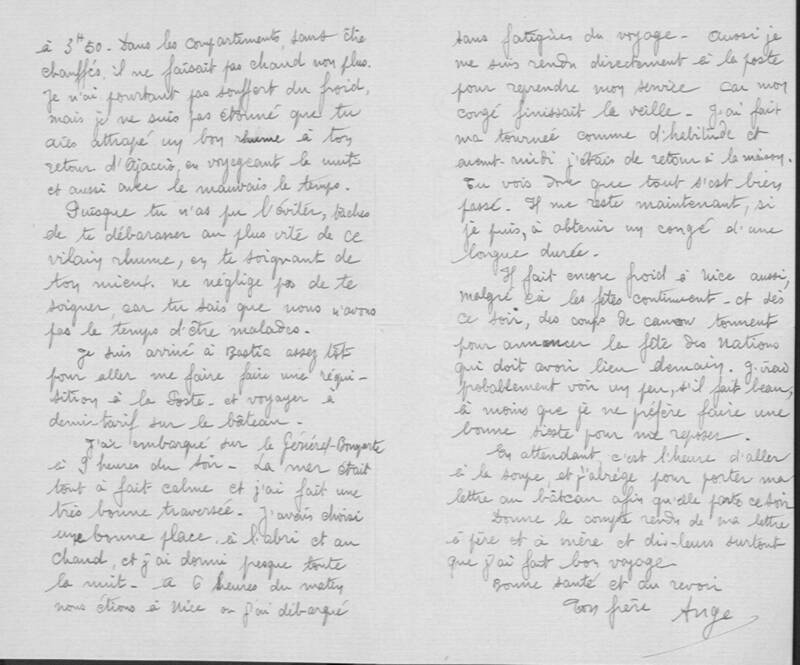 à 3ʰ50 - Dans les compartements, sans être
chauffés, il ne faisait pas chaud non plus.
Je n'ai pourtant pas souffert du froid,
mais je ne suis pas étonné que tu
aies attrapé un bon rhume à ton
retour d'Ajaccio, en voyageant la nuit
et aussi avec le mauvais le temps.
Puisque tu n'as pu l'éviter, taches
de te débarasser au plus vite de ce
vilain rhume, en te soignant de
ton mieux. ne néglige pas de te
soigner, car tu sais que nous n'avons
pas le temps d'être malades.
Je suis arrivé à Bastia assez tôt
pour aller me faire faire une réqui-
sition à la Poste - et voyager à
demi-tarif sur le bâteau.
J'ai embarqué sur le Général-Bonaparte
à 9 heures du soir - La mer était
tout à fait calme et j'ai fait une
très bonne traversée. J'avais choisi
une bonne place, à l'abri et au
chaud, et j'ai dormi presque toute
la nuit - à 6 heures du matin
nous étions à Nice où j'ai débarqué
sans fatigues du voyage - aussi je
me suis rendu directement à la poste
pour reprendre mon service car mon
congé finissait la veille - J'ai fait
ma tournée comme d'habitude et
avant-midi j'étais de retour à la maison.
Tu vois donc que tout s'est bien
passé. Il me reste maintenant, si
je puis, à obtenir un congé d'une
longue durée.
Il fait encore froid à Nice aussi,
malgré çà les fêtes continuent - et dès
ce soir, des coups de canon tonnent
pour annoncer la fête des Nations
qui doit avoir lieu demain. J'irai
probablement voir un peu, s'il fait beau,
à moins que je ne préfère faire une
bonne sieste pour me reposer.
En attendant c'est l'heure d'aller
à la soupe, et j'abrège pour porter ma
lettre au bâteau afin qu'elle parte ce soir
Donne le compte rendu de ma lettre
à père et à mère et dis-leurs surtout
que j'ai fait bon voyage
Bonne santé et au revoir
Ton frère Ange